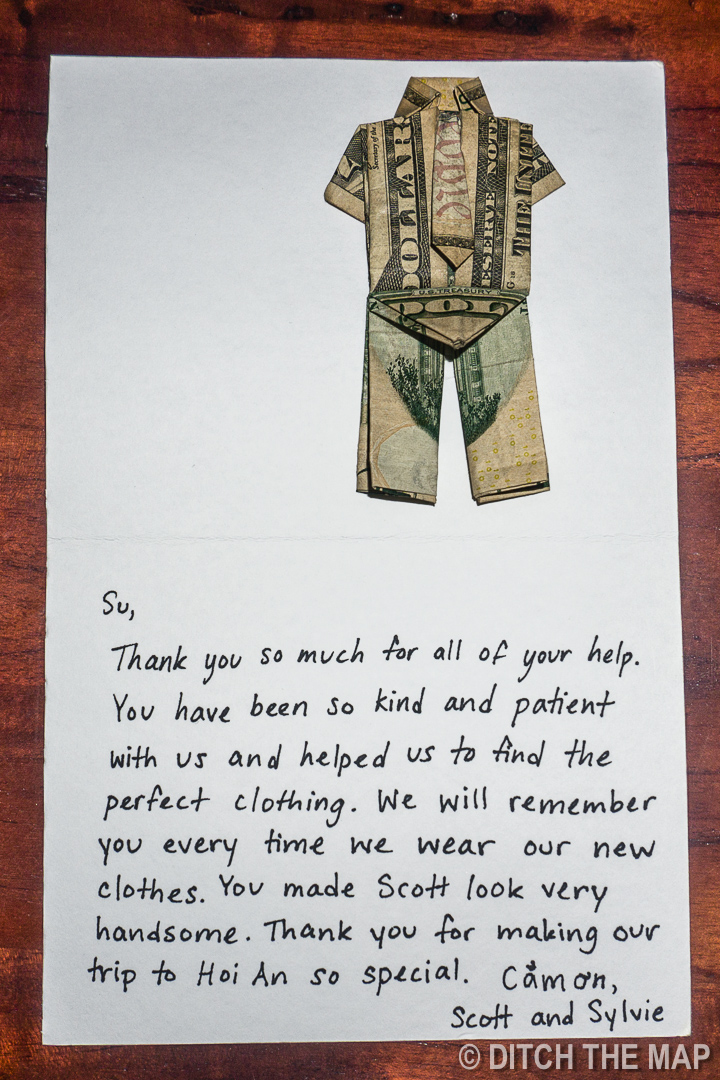 Secretary of the
DOLLARS
ESERVE NOTE
THE UNITE
U.S. TREASURY
Su,
Thank you so much for all of your help.
You have been so kind and patient
with us and helped us to find the
perfect clothing. We will remember
you every time we wear our new
clothes. You made Scott look very
handsome. Thank you for making our
trip to Hoi An so special. Cảm ơn,
Scott and Sylvie
© DITCH THE MAP